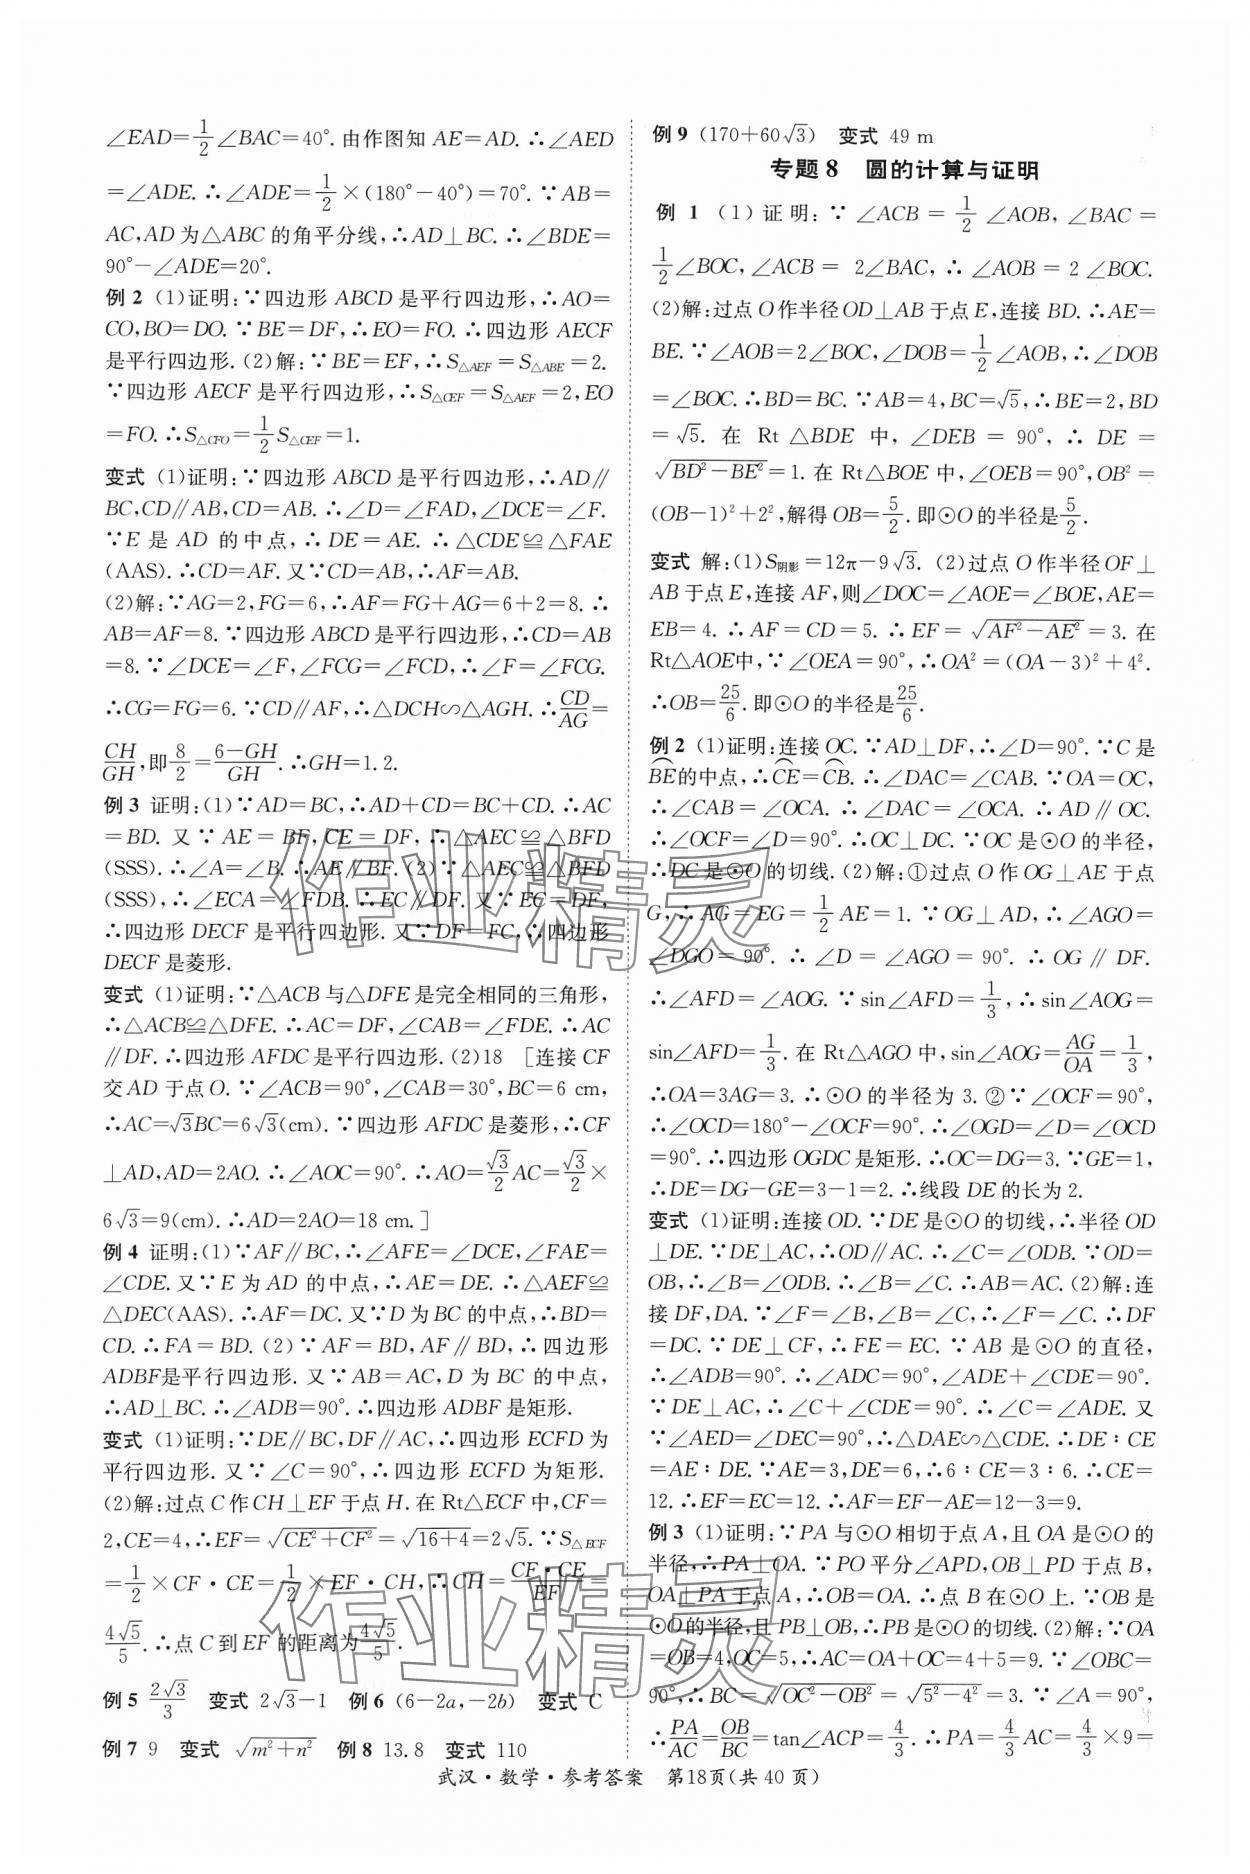 ∠EAD=1/2∠BAC=40°. 由作图知 AE=AD. ∴∠AED
=∠ADE. ∴∠ADE=1/2×(180°-40°)=70°. ∵AB=
AC, AD 为△ABC 的角平分线, ∴AD⊥BC. ∴∠BDE=
90°-∠ADE=20°.
例 2 (1)证明:∵四边形 ABCD 是平行四边形, ∴AO=
CO, BO=DO. ∵BE=DF, ∴EO=FO. ∴四边形 AECF
是平行四边形. (2)解:∵BE=EF, ∴S△AEF=S△ABE=2.
∵四边形 AECF 是平行四边形, ∴S△CEF=S△AEF=2, EO
=FO. ∴S△CFO=1/2 S△CEF=1.
变式 (1)证明:∵四边形 ABCD 是平行四边形, ∴AD∥
BC, CD∥AB, CD=AB. ∴∠D=∠FAD, ∠DCE=∠F.
∵E 是 AD 的中点, ∴DE=AE. ∴△CDE≌△FAE
(AAS). ∴CD=AF. 又∵CD=AB, ∴AF=AB.
(2)解:∵AG=2, FG=6, ∴AF=FG+AG=6+2=8. ∴
AB=AF=8. ∵四边形 ABCD 是平行四边形, ∴CD=AB
=8. ∵∠DCE=∠F, ∠FCG=∠FCD, ∴∠F=∠FCG.
∴CG=FG=6. ∵CD∥AF, ∴△DCH∽△AGH. ∴CD/AG=
CH/GH, 即 8/2=(6-GH)/GH. ∴GH=1.2.
例 3 证明:(1)∵AD=BC, ∴AD+CD=BC+CD. ∴AC
=BD. 又∵AE=BF, CE=DF, ∴△AEC≌△BFD
(SSS). ∴∠A=∠B. ∴AE∥BF. (2)∵△AEC≌△BFD
(SSS), ∴∠ECA=∠FDB. ∴EC∥DF. 又∵EC=DF,
∴四边形 DECF 是平行四边形. 又∵DF=FC, ∴四边形
DECF 是菱形.
变式 (1)证明:∵△ACB 与△DFE 是完全相同的三角形,
∴△ACB≌△DFE. ∴AC=DF, ∠CAB=∠FDE. ∴AC
∥DF. ∴四边形 AFDC 是平行四边形. (2)18 [连接 CF
交 AD 于点 O. ∵∠ACB=90°, ∠CAB=30°, BC=6 cm,
∴AC=√3BC=6√3(cm). ∵四边形 AFDC 是菱形, ∴CF
⊥AD, AD=2AO. ∴∠AOC=90°. ∴AO=√3/2 AC=√3/2×
6√3=9(cm). ∴AD=2AO=18 cm.]
例 4 证明:(1)∵AF∥BC, ∴∠AFE=∠DCE, ∠FAE=
∠CDE. 又∵E 为 AD 的中点, ∴AE=DE. ∴△AEF≌
△DEC(AAS). ∴AF=DC. 又∵D 为 BC 的中点, ∴BD=
CD. ∴FA=BD. (2)∵AF=BD, AF∥BD, ∴四边形
ADBF是平行四边形. 又∵AB=AC, D 为 BC 的中点,
∴AD⊥BC. ∴∠ADB=90°. ∴四边形 ADBF 是矩形.
变式 (1)证明:∵DE∥BC, DF∥AC, ∴四边形 ECFD 为
平行四边形. 又∵∠C=90°, ∴四边形 ECFD 为矩形.
(2)解:过点 C 作 CH⊥EF 于点 H. 在 Rt△ECF 中, CF=
2, CE=4, ∴EF=√(CE²+CF²)=√(16+4)=2√5. ∵S△ECF
=1/2×CF·CE=1/2×EF·CH, ∴CH=(CF·CE)/EF=
4√5/5. ∴点 C 到 EF 的距离为 4√5/5.
例 5 2√3/3 变式 2√3-1 例 6 (6-2a, -2b) 变式 C
例 7 9 变式 √(m²+n²) 例 8 13.8 变式 110
例 9 (170+60√3) 变式 49 m
专题 8 圆的计算与证明
例 1 (1)证明:∵∠ACB=1/2∠AOB, ∠BAC=
1/2∠BOC, ∠ACB=2∠BAC, ∴∠AOB=2∠BOC.
(2)解:过点 O 作半径 OD⊥AB 于点 E, 连接 BD. ∴AE=
BE. ∵∠AOB=2∠BOC, ∠DOB=1/2∠AOB, ∴∠DOB
=∠BOC. ∴BD=BC. ∵AB=4, BC=√5, ∴BE=2, BD
=√5. 在 Rt△BDE 中, ∠DEB=90°, ∴DE=
√(BD²-BE²)=1. 在 Rt△BOE 中, ∠OEB=90°, OB²=
(OB-1)²+2², 解得 OB=5/2. 即⊙O 的半径是 5/2.
变式 解:(1)S阴影=12π-9√3. (2)过点 O 作半径 OF⊥
AB 于点 E, 连接 AF, 则∠DOC=∠AOE=∠BOE, AE=
EB=4. ∴AF=CD=5. ∴EF=√(AF²-AE²)=3. 在
Rt△AOE中, ∵∠OEA=90°, ∴OA²=(OA-3)²+4².
∴OB=25/6. 即⊙O 的半径是 25/6.
例 2 (1)证明:连接 OC. ∵AD⊥DF, ∴∠D=90°. ∵C 是
⌒BE的中点, ∴⌒CE=⌒CB. ∴∠DAC=∠CAB. ∵OA=OC,
∴∠CAB=∠OCA. ∴∠DAC=∠OCA. ∴AD∥OC.
∴∠OCF=∠D=90°. ∴OC⊥DC. ∵OC 是⊙O 的半径,
∴DC 是⊙O 的切线. (2)解:①过点 O 作 OG⊥AE 于点
G, ∴AG=EG=1/2 AE=1. ∵OG⊥AD, ∴∠AGO=
∠DGO=90°. ∴∠D=∠AGO=90°. ∴OG∥DF.
∴∠AFD=∠AOG. ∵sin∠AFD=1/3, ∴sin∠AOG=
sin∠AFD=1/3. 在 Rt△AGO 中, sin∠AOG=AG/OA=1/3,
∴OA=3AG=3. ∴⊙O 的半径为 3. ②∵∠OCF=90°,
∴∠OCD=180°-∠OCF=90°. ∴∠OGD=∠D=∠OCD
=90°. ∴四边形 OGDC 是矩形. ∴OC=DG=3. ∵GE=1,
∴DE=DG-GE=3-1=2. ∴线段 DE 的长为 2.
变式 (1)证明:连接 OD. ∵DE 是⊙O 的切线, ∴半径 OD
⊥DE. ∵DE⊥AC, ∴OD∥AC. ∴∠C=∠ODB. ∵OD=
OB, ∴∠B=∠ODB. ∴∠B=∠C. ∴AB=AC. (2)解:连
接 DF, DA. ∵∠F=∠B, ∠B=∠C, ∴∠F=∠C. ∴DF
=DC. ∵DE⊥CF, ∴FE=EC. ∵AB 是⊙O 的直径,
∴∠ADB=90°. ∴∠ADC=90°, ∠ADE+∠CDE=90°.
∵DE⊥AC, ∴∠C+∠CDE=90°. ∴∠C=∠ADE. 又
∵∠AED=∠DEC=90°, ∴△DAE∽△CDE. ∴DE∶CE
=AE∶DE. ∵AE=3, DE=6, ∴6∶CE=3∶6. ∴CE=
12. ∴EF=EC=12. ∴AF=EF-AE=12-3=9.
例 3 (1)证明:∵PA 与⊙O 相切于点 A, 且 OA 是⊙O 的
半径, ∴PA⊥OA. ∵PO 平分∠APD, OB⊥PD 于点 B,
OA⊥PA 于点 A, ∴OB=OA. ∴点 B 在⊙O 上. ∵OB 是
⊙O 的半径, 且 PB⊥OB, ∴PB 是⊙O 的切线. (2)解:∵OA
=OB=4, OC=5, ∴AC=OA+OC=4+5=9. ∵∠OBC=
90°, ∴BC=√(OC²-OB²)=√(5²-4²)=3. ∵∠A=90°,
∴PA/AC=OB/BC=tan∠ACP=4/3. ∴PA=4/3 AC=4/3×9=
武汉·数学·参考答案 第18页(共 40 页)
作业精灵
作业精灵